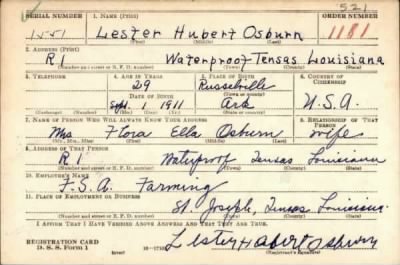 521
SERIAL NUMBER 1. NAME (Print) ORDER NUMBER
1551 Lester Hubert Osburn 1181
(First) (Middle) (Last)
2. ADDRESS (Print)
R1 Waterproof Tensas Louisiana
(Number and street or R. F. D. number) (Town) (County) (State)
3. TELEPHONE 4. AGE IN YEARS 5. PLACE OF BIRTH 6. COUNTRY OF CITIZENSHIP
29 Russelville
DATE OF BIRTH (Town or county)
Sept. 1 1911 Ark U.S.A.
(Mo.) (Day) (Yr.) (State or country)
7. NAME OF PERSON WHO WILL ALWAYS KNOW YOUR ADDRESS 8. RELATIONSHIP OF THAT PERSON
Mrs Flora Ella Osburn wife
(Mr., Mrs., Miss) (First) (Middle) (Last)
9. ADDRESS OF THAT PERSON
R1 Waterproof Tensas Louisiana
(Number and street or R. F. D. number) (Town) (County) (State)
10. EMPLOYER'S NAME
F.S.A. Farming
11. PLACE OF EMPLOYMENT OR BUSINESS
St. Joseph, Tensas Louisiana
(Number and street or R. F. D. number) (Town) (County) (State)
I AFFIRM THAT I HAVE VERIFIED ABOVE ANSWERS AND THAT THEY ARE TRUE.
REGISTRATION CARD
D. S. S. Form 1 (over) Lester Hubert Osburn
(Registrant's signature)